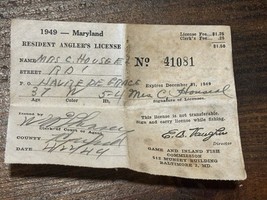 1949 — Maryland
RESIDENT ANGLER'S LICENSE
License Fee, $1.25
Clerk's Fee, .25
$1.50
NAME MRS C. HOUSEL
Nº 41081
STREET R D 1
P. O. HAVRE DE GRACE
Expires December 31, 1949
37 5-4 Mrs C. Housel
Age Color Ht. Signature of Licensee.
Issued by
This license is not transferable.
Sign and carry license while fishing.
COUNTY
DATE
Director
GAME AND INLAND FISH
COMMISSION
512 MUNSEY BUILDING
BALTIMORE 2, MD.